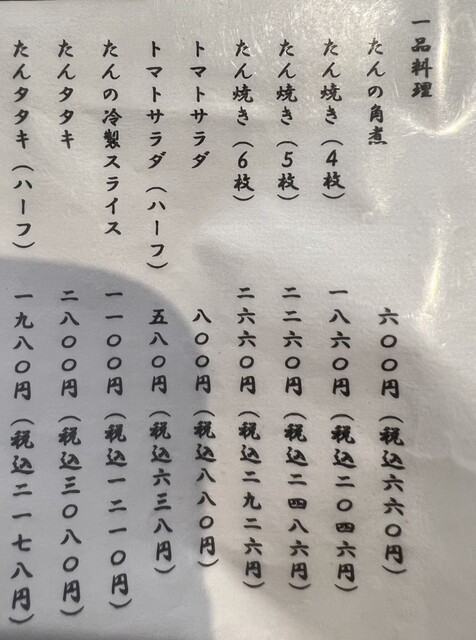 一品料理
たんの角煮 六〇〇円(税込六六〇円)
たん焼き(4枚) 一八六〇円(税込二〇四六円)
たん焼き(5枚) 二二六〇円(税込二四八六円)
たん焼き(6枚) 二六六〇円(税込二九二六円)
トマトサラダ 八〇〇円(税込八八〇円)
トマトサラダ(ハーフ) 五八〇円(税込六三八円)
たんの冷製スライス 一一〇〇円(税込一二一〇円)
たんタタキ 二八〇〇円(税込三〇八〇円)
たんタタキ(ハーフ) 一九八〇円(税込二一七八円)